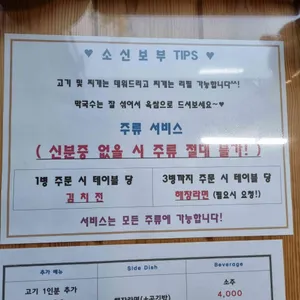 ♥ 소신보부 TIPS ♥
고기 및 찌개는 데워드리고 찌개는 리필 가능합니다^^!
막국수는 잘 섞어서 육쌈으로 드셔보세요~♥
주류 서비스
( 신분증 없을 시 주류 절대 불가! )
1병 주문 시 테이블 당
김치전
3병까지 주문 시 테이블 당
해장라면 (필요시 요청!)
서비스는 모든 주류에 가능합니다!
추가 메뉴
Side Dish
Beverage
고기 1인분 추가
해장라면(+공기밥)
소주
4,000